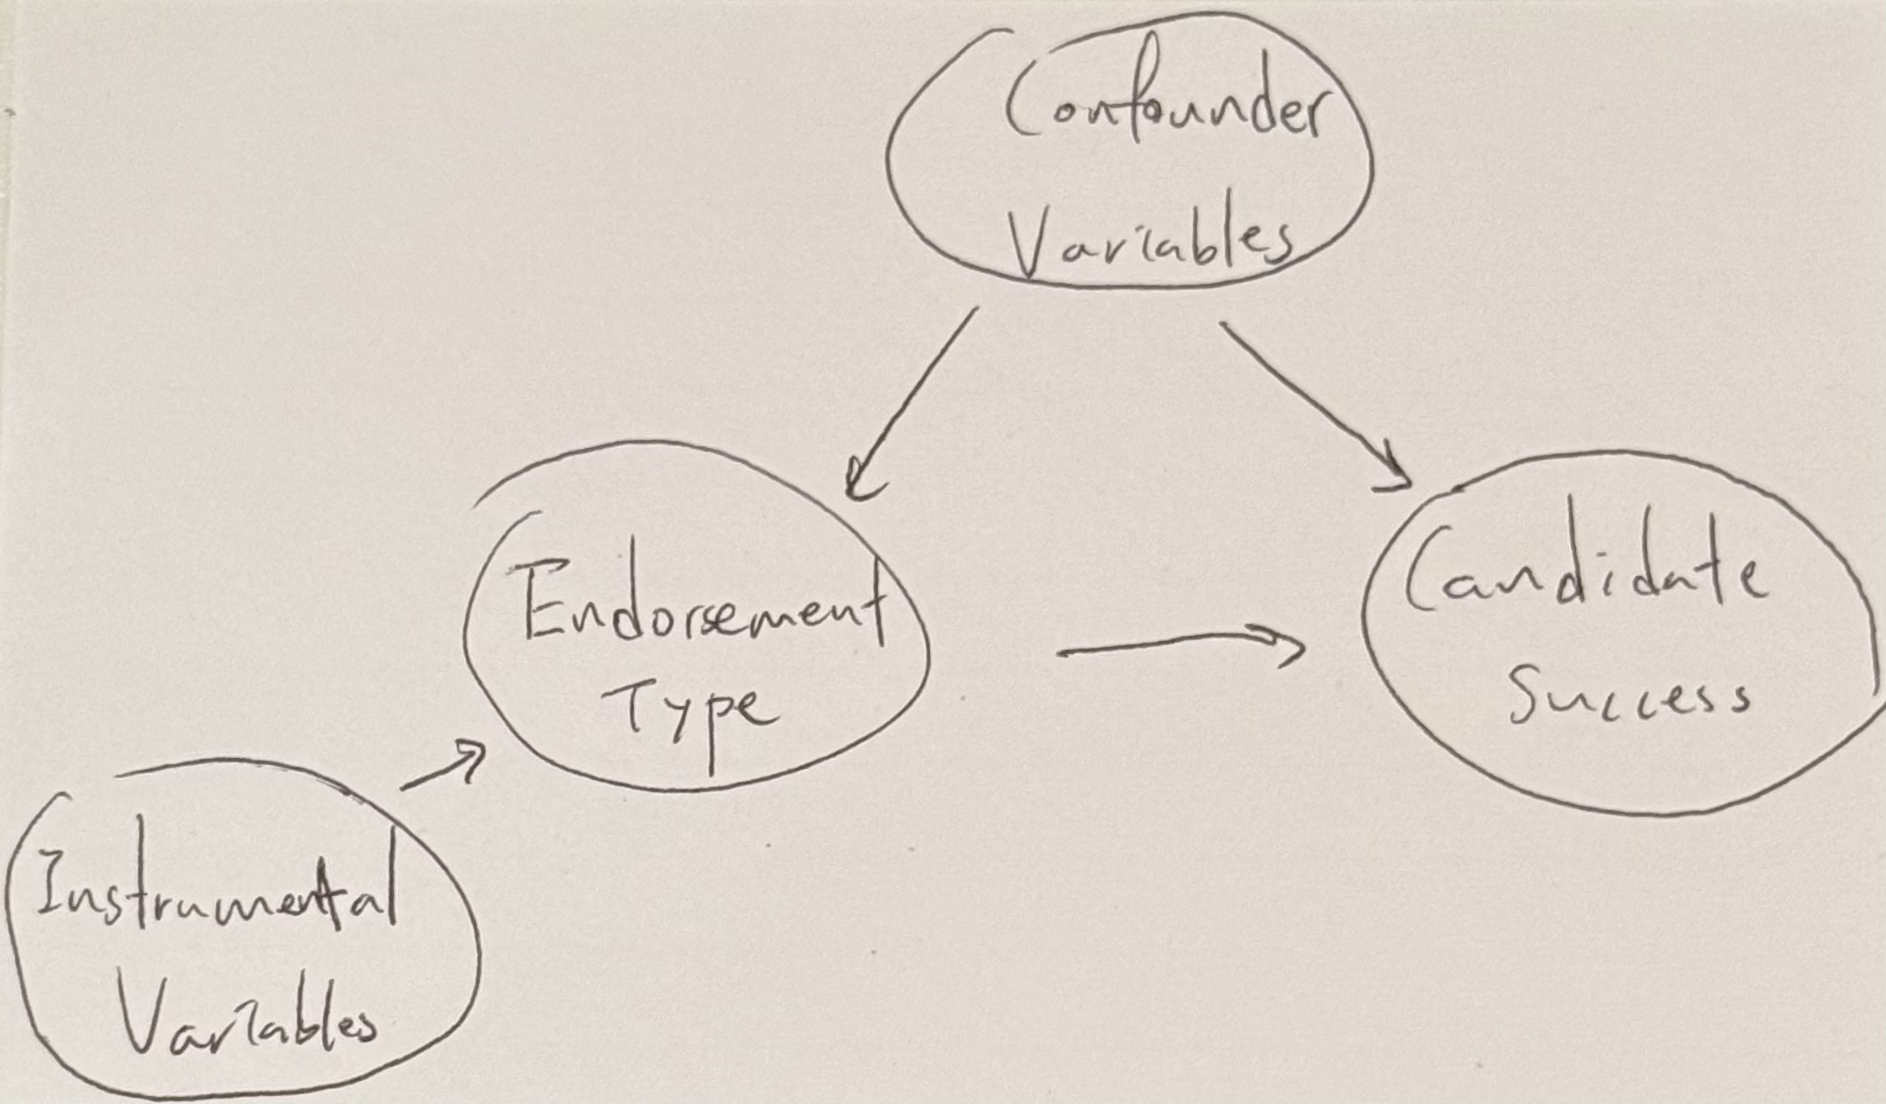 Confounder
Variables
Endorsement
Type
Candidate
Success
Instrumental
Variables